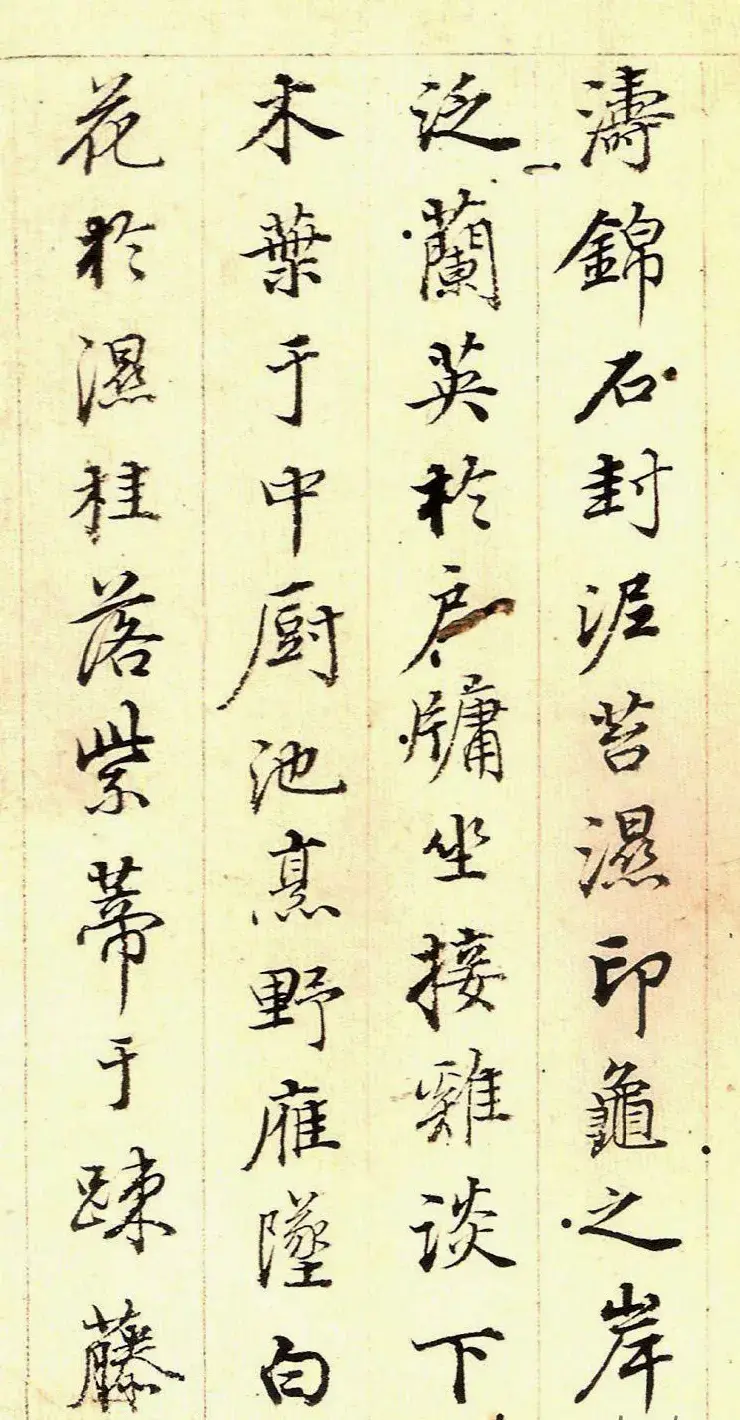 濤錦石封泥苔濕印龜之岸
泛蘭英於戶牖坐接雞談下
木葉于中厨池亮野雁墜白
花於濕桂落紫蔕于踈藤